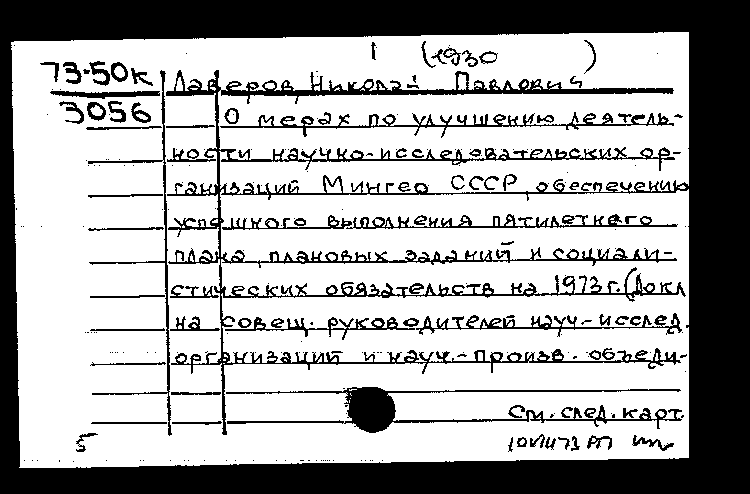 1 (1930 )
73-50к Лаверов, Николай Павлович
3056 О мерах по улучшению деятель-
ности научно-исследовательских ор-
ганизаций Мингео СССР, обеспечению
успешного выполнения пятилетнего
плана, плановых заданий и социали-
стических обязательств на 1973 г. (Докл
на совещ. руководителей науч.-исслед.
организаций и науч.-произв. объеди-
См. след. карт
5